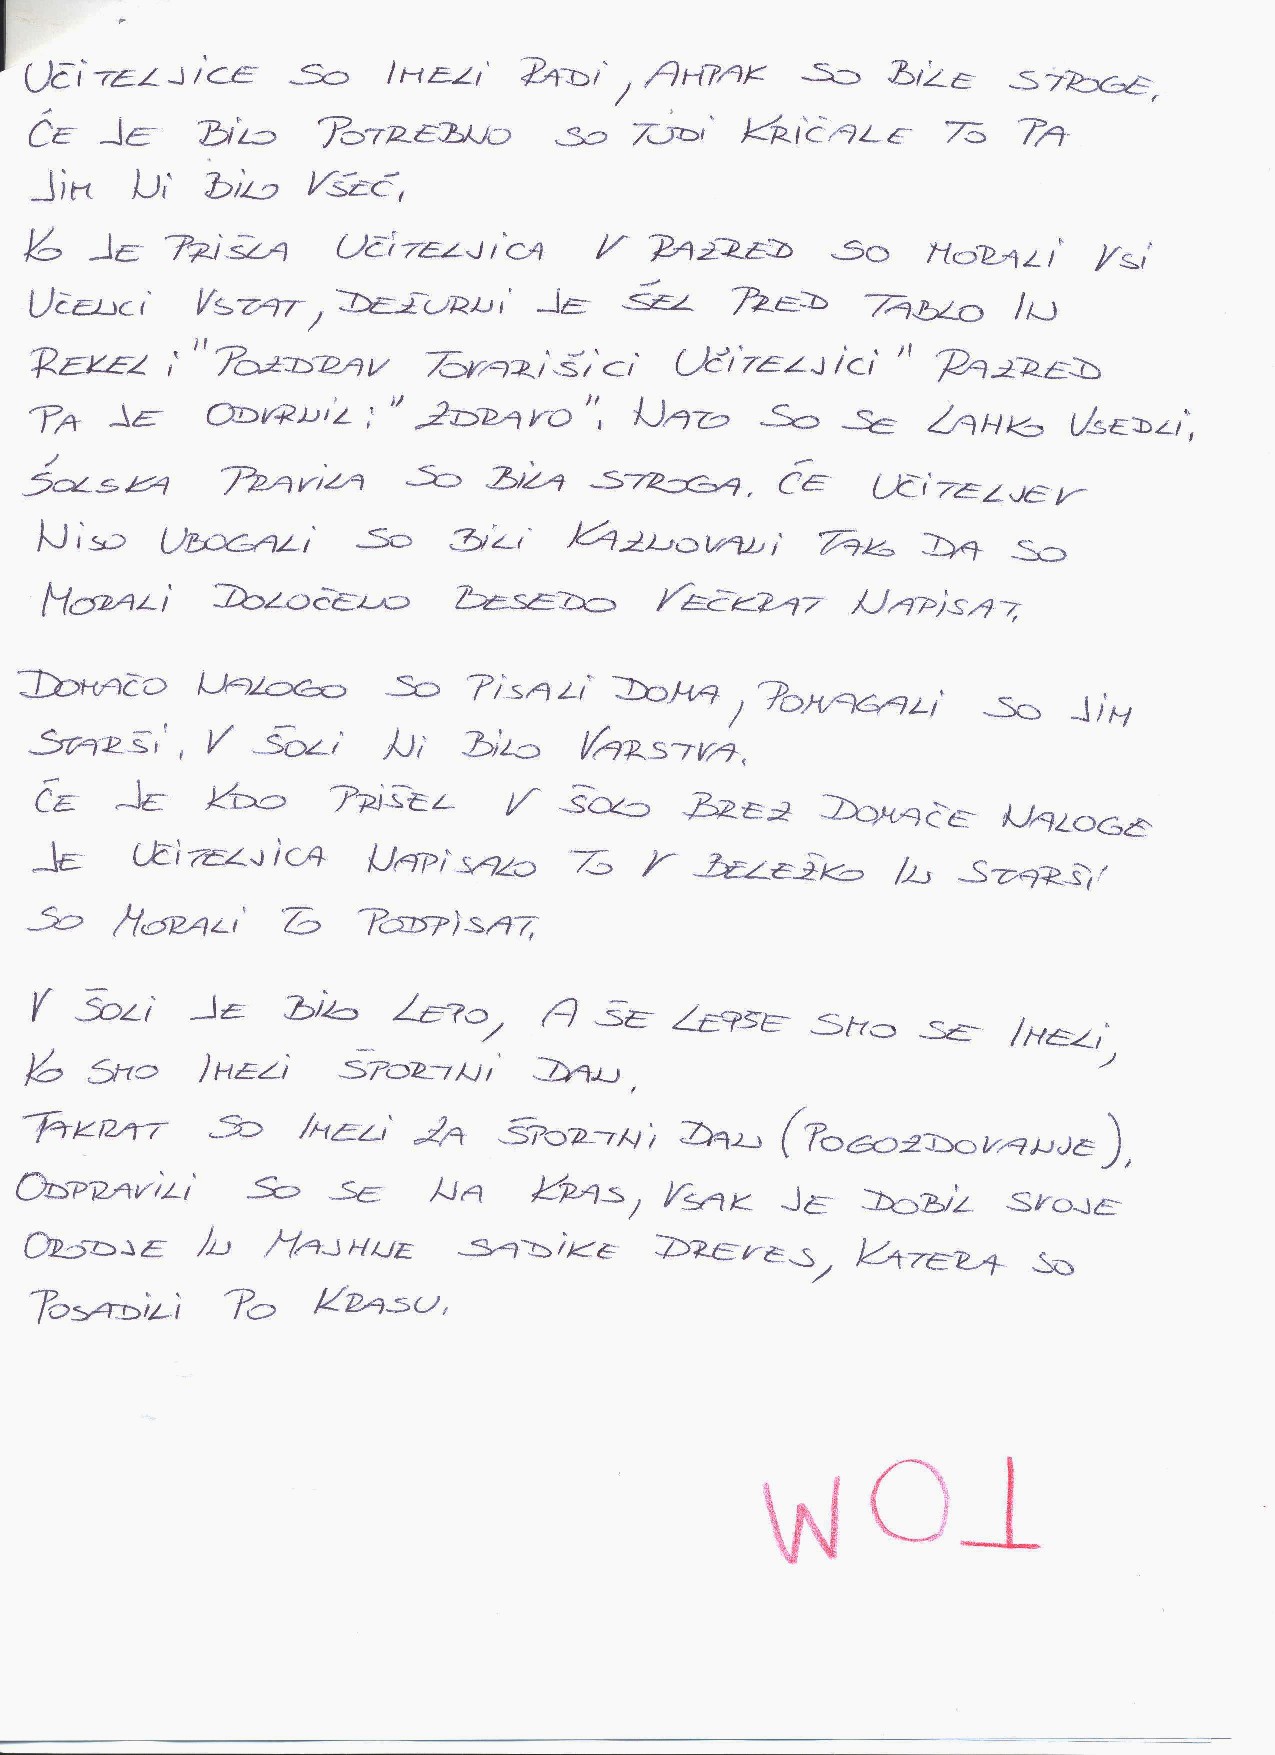 UČITELJICE SO IMELI RADI, AMPAK SO BILE STROGE.
ČE JE BILO POTREBNO SO TUDI KRIČALE TO PA
JIM NI BILO VŠEČ.
KO JE PRIŠLA UČITELJICA V RAZRED SO MORALI VSI
UČENCI VSTAT, DEŽURNI JE ŠEL PRED TABLO IN
REKEL: "POZDRAV TOVARIŠICI UČITELJICI" RAZRED
PA JE ODVRNIL: "ZDRAVO". NATO SO SE LAHKO USEDLI.
ŠOLSKA PRAVILA SO BILA STROGA. ČE UČITELJEV
NISO UBOGALI SO BILI KAZNOVANI TAK DA SO
MORALI DOLOČENO BESEDO VEČKRAT NAPISAT.
DOMAČO NALOGO SO PISALI DOMA, POMAGALI SO JIM
STARŠI, V ŠOLI NI BILO VARSTVA.
ČE JE KDO PRIŠEL V ŠOLO BREZ DOMAČE NALOGE
JE UČITELJICA NAPISALO TO V BELEŽKO IN STARŠI
SO MORALI TO PODPISAT.
V ŠOLI JE BILO LEPO, A ŠE LEPŠE SMO SE IMELI,
KO SMO IMELI ŠPORTNI DAN.
TAKRAT SO IMELI ZA ŠPORTNI DAN (POGOZDOVANJE).
ODPRAVILI SO SE NA KRAS, VSAK JE DOBIL SVOJE
ORODJE IN MAJHNE SADIKE DREVES, KATERA SO
POSADILI PO KRASU.
TOM